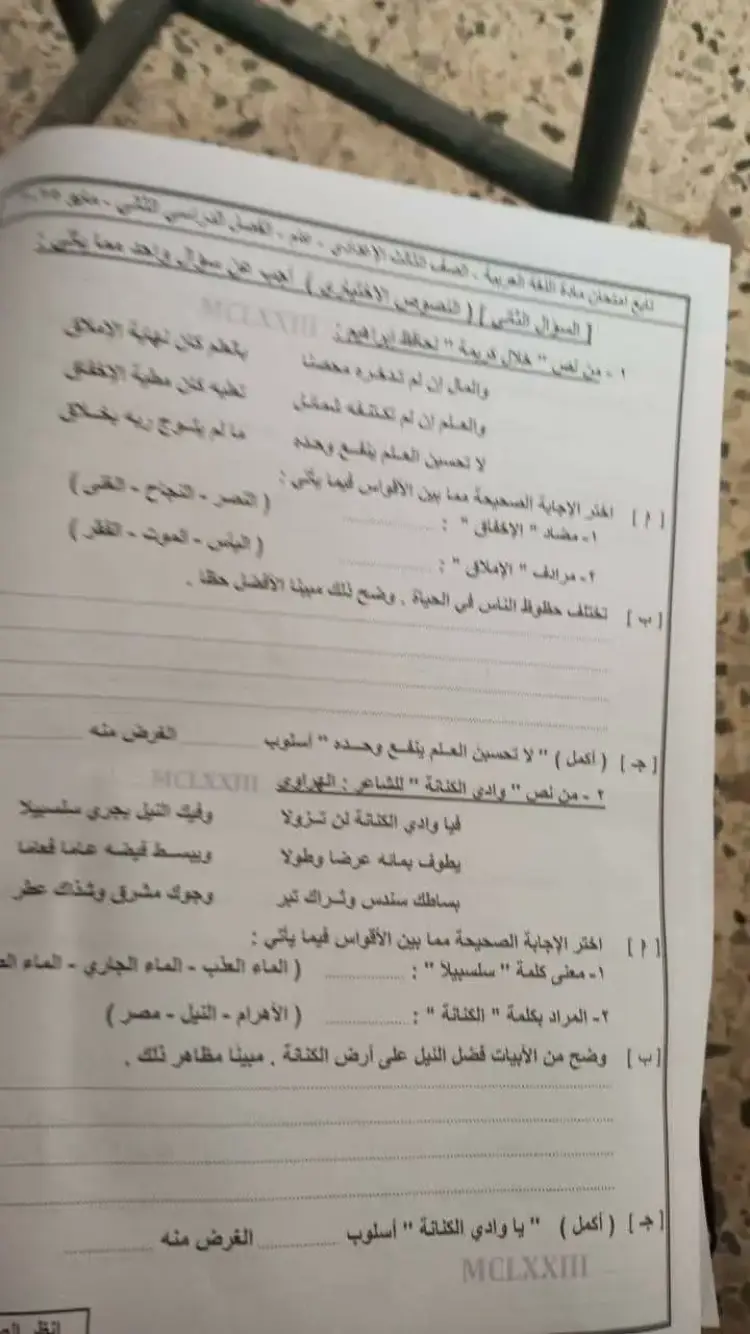 تابع امتحان مادة اللغة العربية - الصف الثالث الإعدادي - عام - الفصل الدراسي الثاني - مايو
[ السؤال الثاني ] ( النصوص الاختياري ) أجب عن سؤال واحد مما يأتي :
MCLXXIII
١ - من نص " خلال كريمة " لحافظ إبراهيم :
والمال إن لم تدخره محصنا بالعلم كان نهاية الإملاق
والعلم إن لم تكتنفه شمائل تعليه كان مطية الإخفاق
لا تحسبن العلم ينفع وحده ما لم يتوج ربه بخلاق
[ أ ] اختر الإجابة الصحيحة مما بين الأقواس فيما يأتي :
١- مضاد " الإخفاق " : ............ ( النصر - النجاح - الغنى )
٢- مرادف " الإملاق " : ............ ( اليأس - الموت - الفقر )
[ ب ] تختلف حظوظ الناس في الحياة . وضح ذلك مبينا الأفضل حظا .
[ جـ ] ( أكمل ) " لا تحسبن العلم ينفع وحده " أسلوب ............ الغرض منه ............
٢ - من نص " وادي الكنانة " للشاعر : الهراوي MCLXXIII
فيا وادي الكنانة لن تزولا وفيك النيل يجري سلسبيلا
يطوف بمائه عرضا وطولا ويبسط فيضه عاما فعاما
بساطك سندس وثراك تبر وجوك مشرق وشذاك عطر
[ أ ] اختر الإجابة الصحيحة مما بين الأقواس فيما يأتي :
١- معنى كلمة " سلسبيلا " : ............ ( الماء العذب - الماء الجاري - الماء
٢- المراد بكلمة " الكنانة " : ............ ( الأهرام - النيل - مصر )
[ ب ] وضح من الأبيات فضل النيل على أرض الكنانة . مبينا مظاهر ذلك .
[ جـ ] ( أكمل ) " يا وادي الكنانة " أسلوب ............ الغرض منه ............
MCLXXIII
انظر